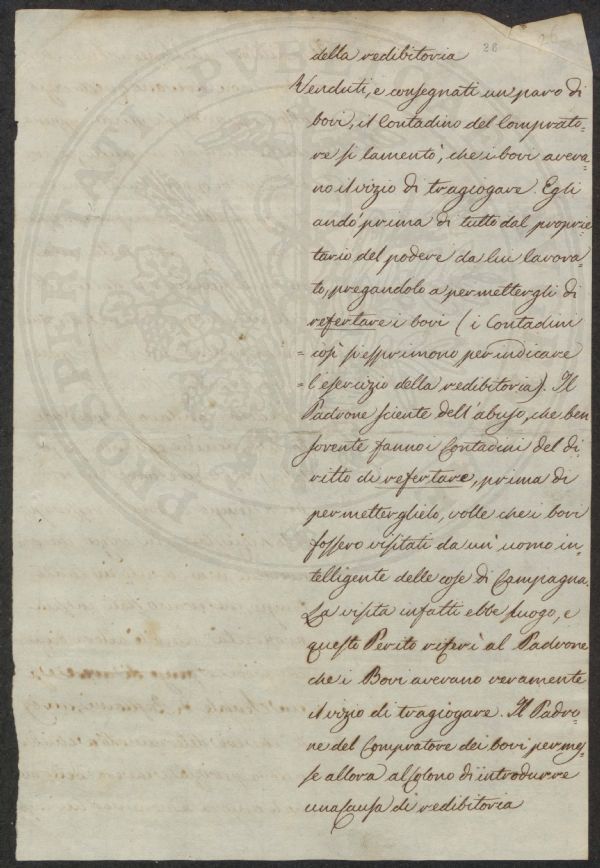 28
della redibitoria
Venduti, e consegnati un'paro di
bovi, il Contadino del Comprato=
re si lamentò, che i bovi aveva=
no il vizio di tragiogare Egli
andò prima di tutto dal proprie=
tario del podere da lui lavora=
to, pregandolo a permettergli di
refertare i bovi (i Contadini
= così si esprimono per indicare
= l'esercizio della redibitoria). Il
Padrone sciente dell'abuso, che ben
sovente fanno i Contadini del di=
ritto di refertare, prima di
permetterglielo, volle che i bovi
fossero visitati da un'uomo in=
telligente delle cose di Campagna.
La visita infatti ebbe luogo, e
questo Perito riferì al Padrone
che i Bovi avevano veramente
il vizio di tragiogare. Il Padro=
ne del Compratore dei bovi permes=
se allora al Colono di introdurre
una Causa di redibitoria
PRO PATRIAE PVBLICO